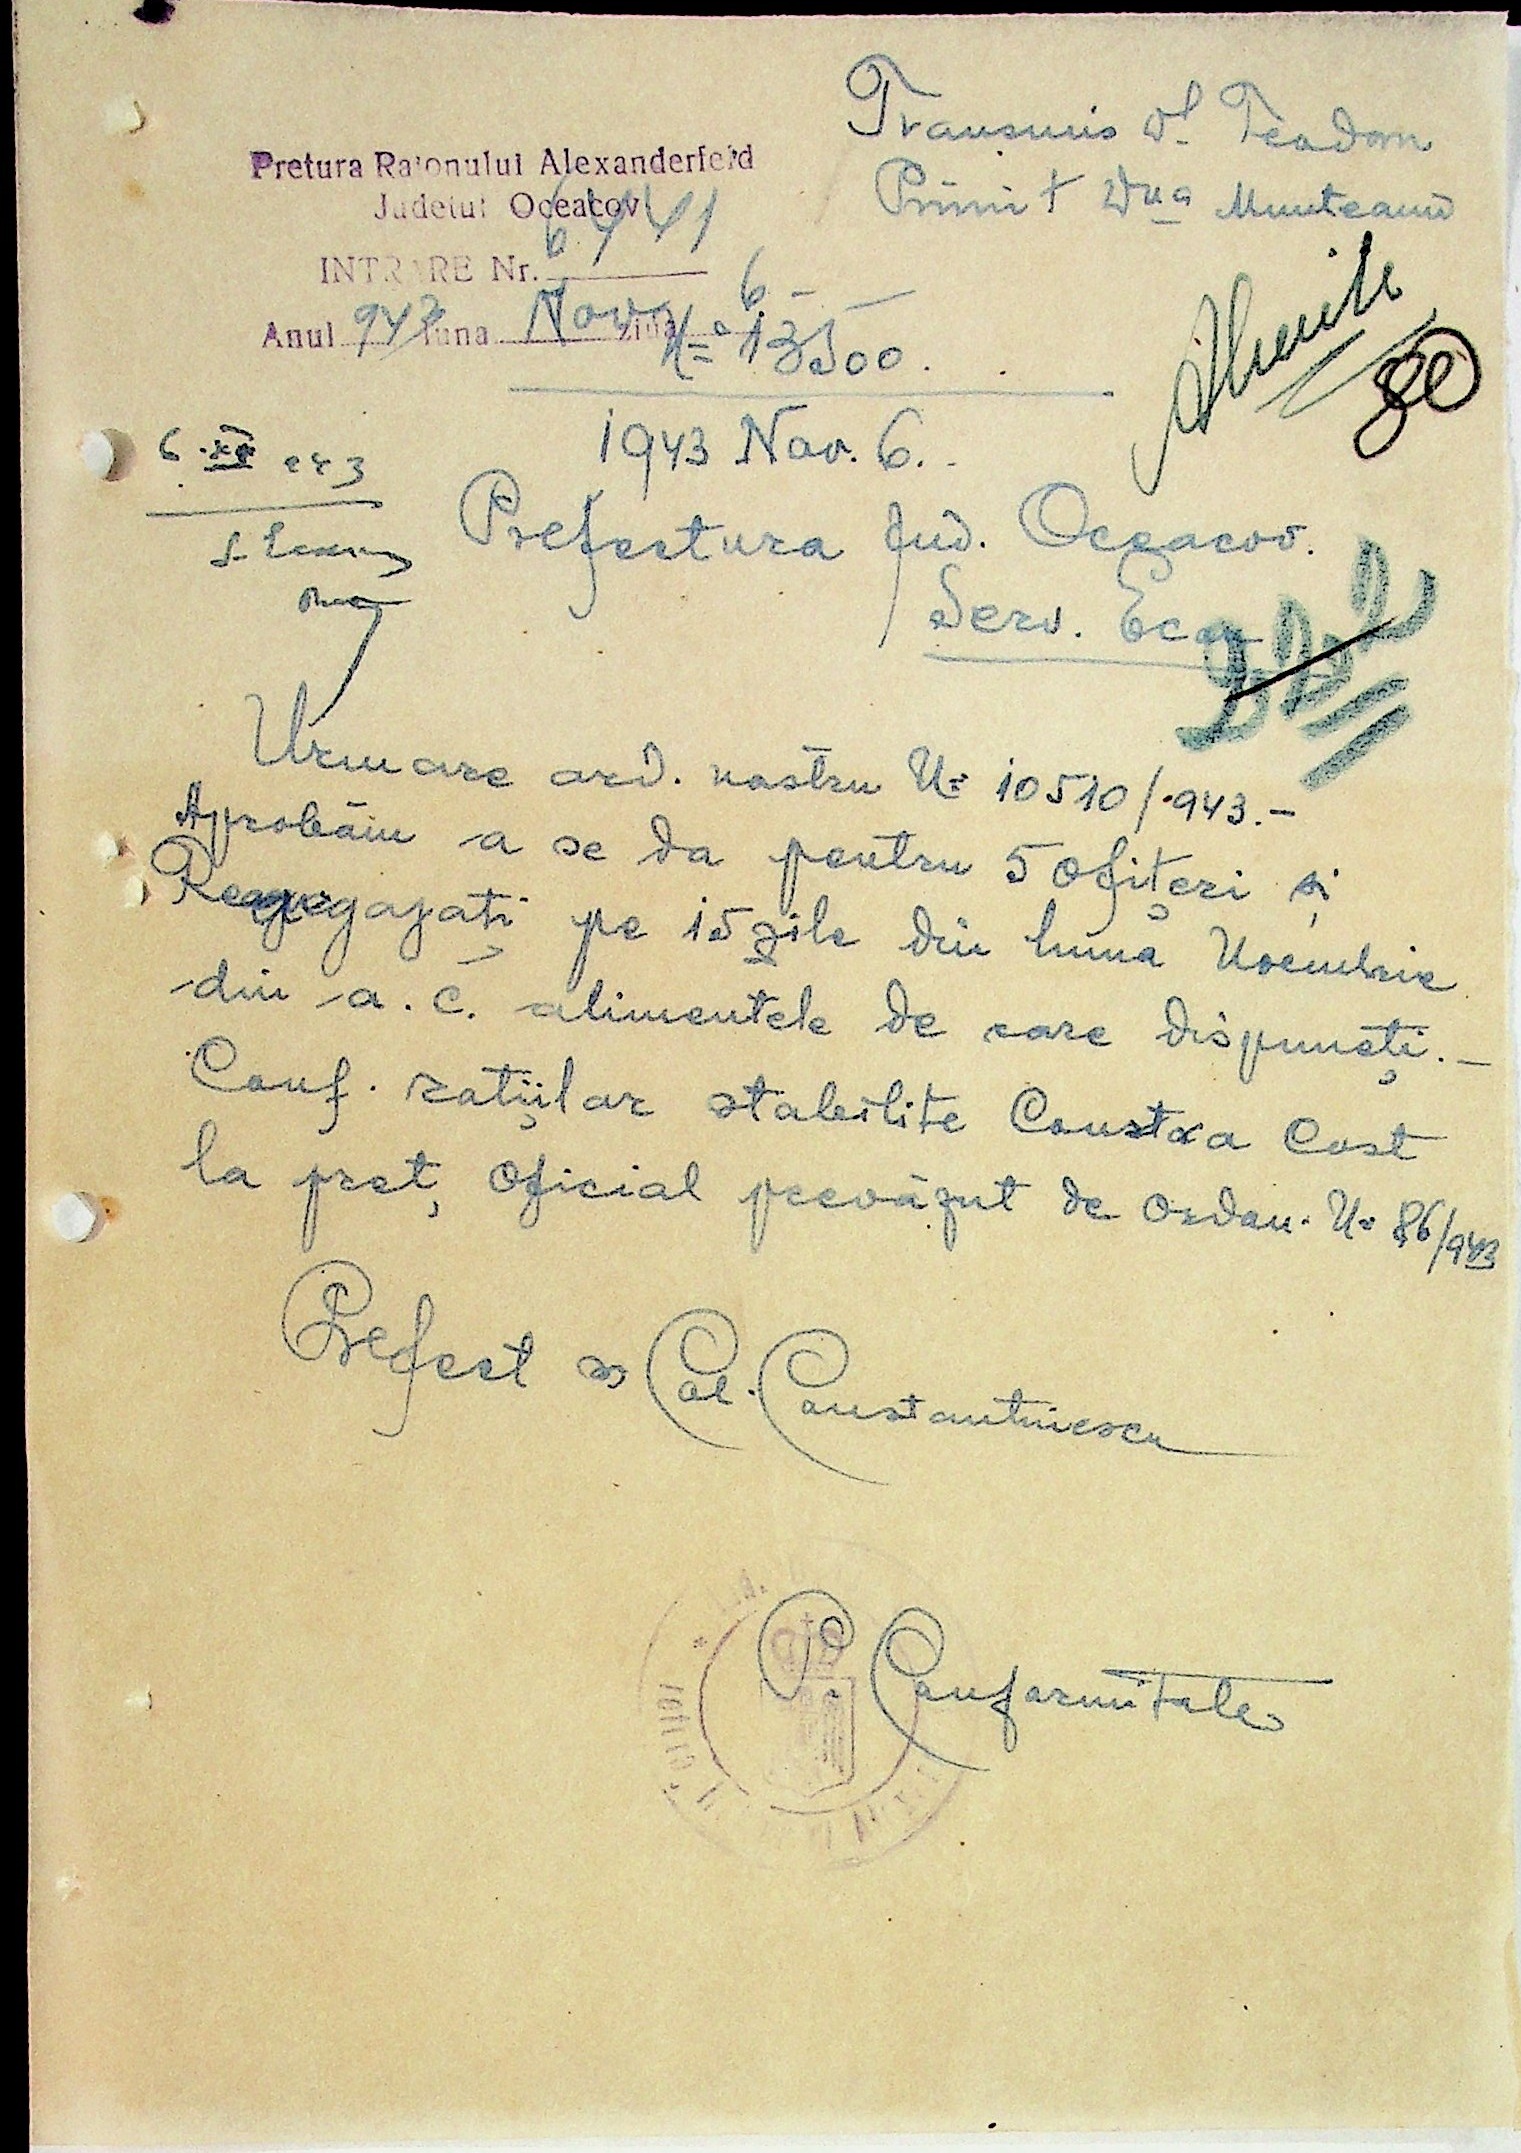 Transmis Dl Teodoru
Primit Dna Munteanu
Pretura Raionului Alexanderfeld
Judetul Oceacov
INTRARE Nr. 6441
Anul 943 luna Nov ziua 6-
Nº 13500.
80
1943 Nov. 6.-
6.XI 943
Prefectura Jud. Oceacov.
Serv. Ec
Urmare ord. nostru Nº 10510/.943.-
Aprobăm a se da pentru 5 ofițeri și
pe 15 zile din luna Noembrie
din a.c. alimentele de care dispuneți.-
Conf. rațiilor stabilite Contra Cost
la preț oficial prevăzut de ordon. Nº 86/943
Prefect ss Col. Constantinescu
P. Conformitate